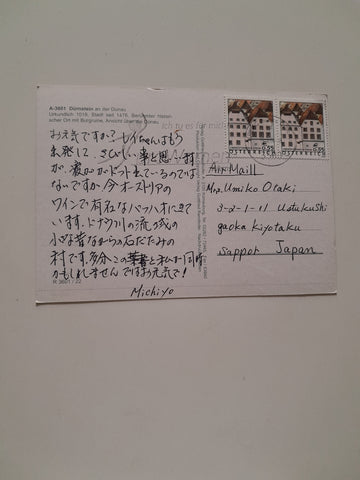 A-3601 Dürnstein an der Donau
Urkundlich 1019, Stadt seit 1476. Berühmter histori-
scher Ort mit Burgruine, Ansicht über die Donau
お元気ですか?
出発して、さびしい事と思います
が、
ないですか 今オーストリアの
ワインで有名なバッハオに来て
います。ドナウ川の流域の
小さな昔ながらの石だたみの
村です。多分、この葉書と私が同時
かもしれませんではお元気で!
Michiyo
R 3601 / 22
Ich tu es für mich
ÖSTERREICH
ÖSTERREICH
AIR MAIL
Mrs. Umiko Otaki
3-2-1-11 Utukushi
gaoka kiyotaku
sappor Japan